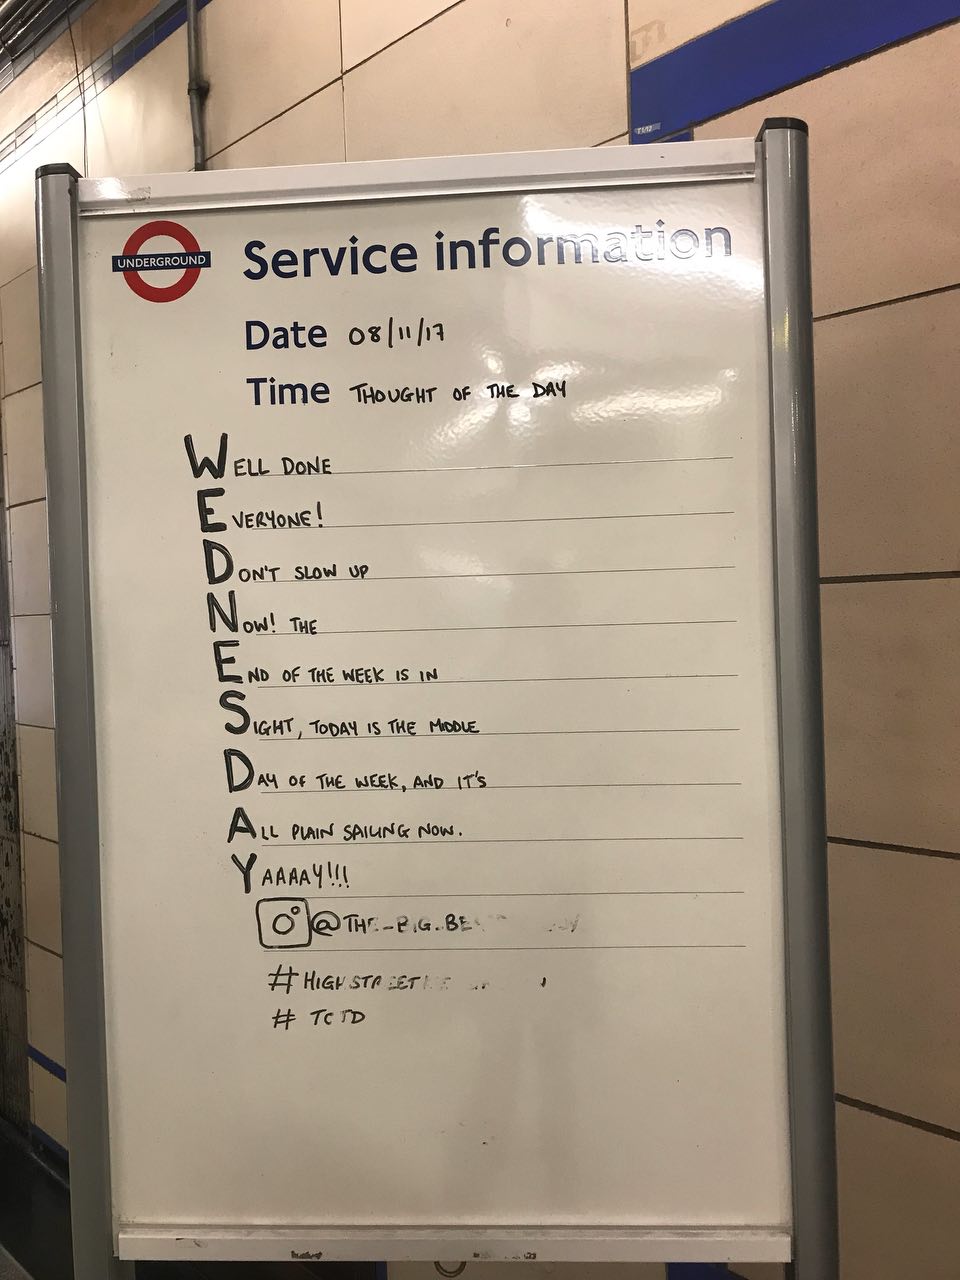 UNDERGROUND
Service information
Date 08/11/17
Time THOUGHT OF THE DAY
WELL DONE
EVERYONE!
DON'T SLOW UP
NOW! THE
END OF THE WEEK IS IN
SIGHT, TODAY IS THE MIDDLE
DAY OF THE WEEK, AND IT'S
ALL PLAIN SAILING NOW.
YAAAAY!!!
#TOTD